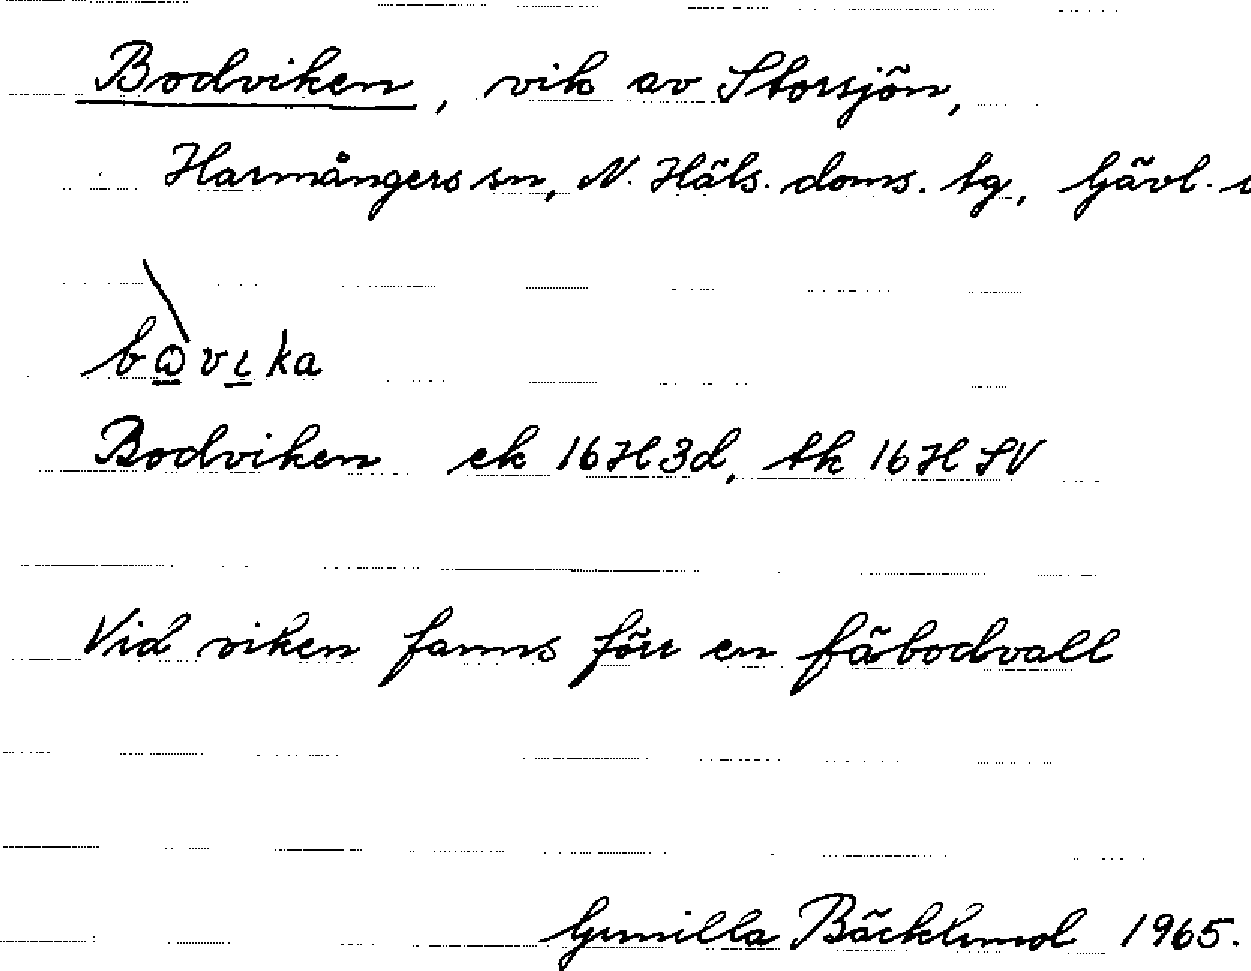 Bodviken, vik av Storsjön,
Harmångers sn, N. Häls. doms. tg, Gävl.
Bodviken ek 16H3d, tk 16H SV
Vid viken fanns förr en fäbodvall
Gunilla Bäcklund 1965.